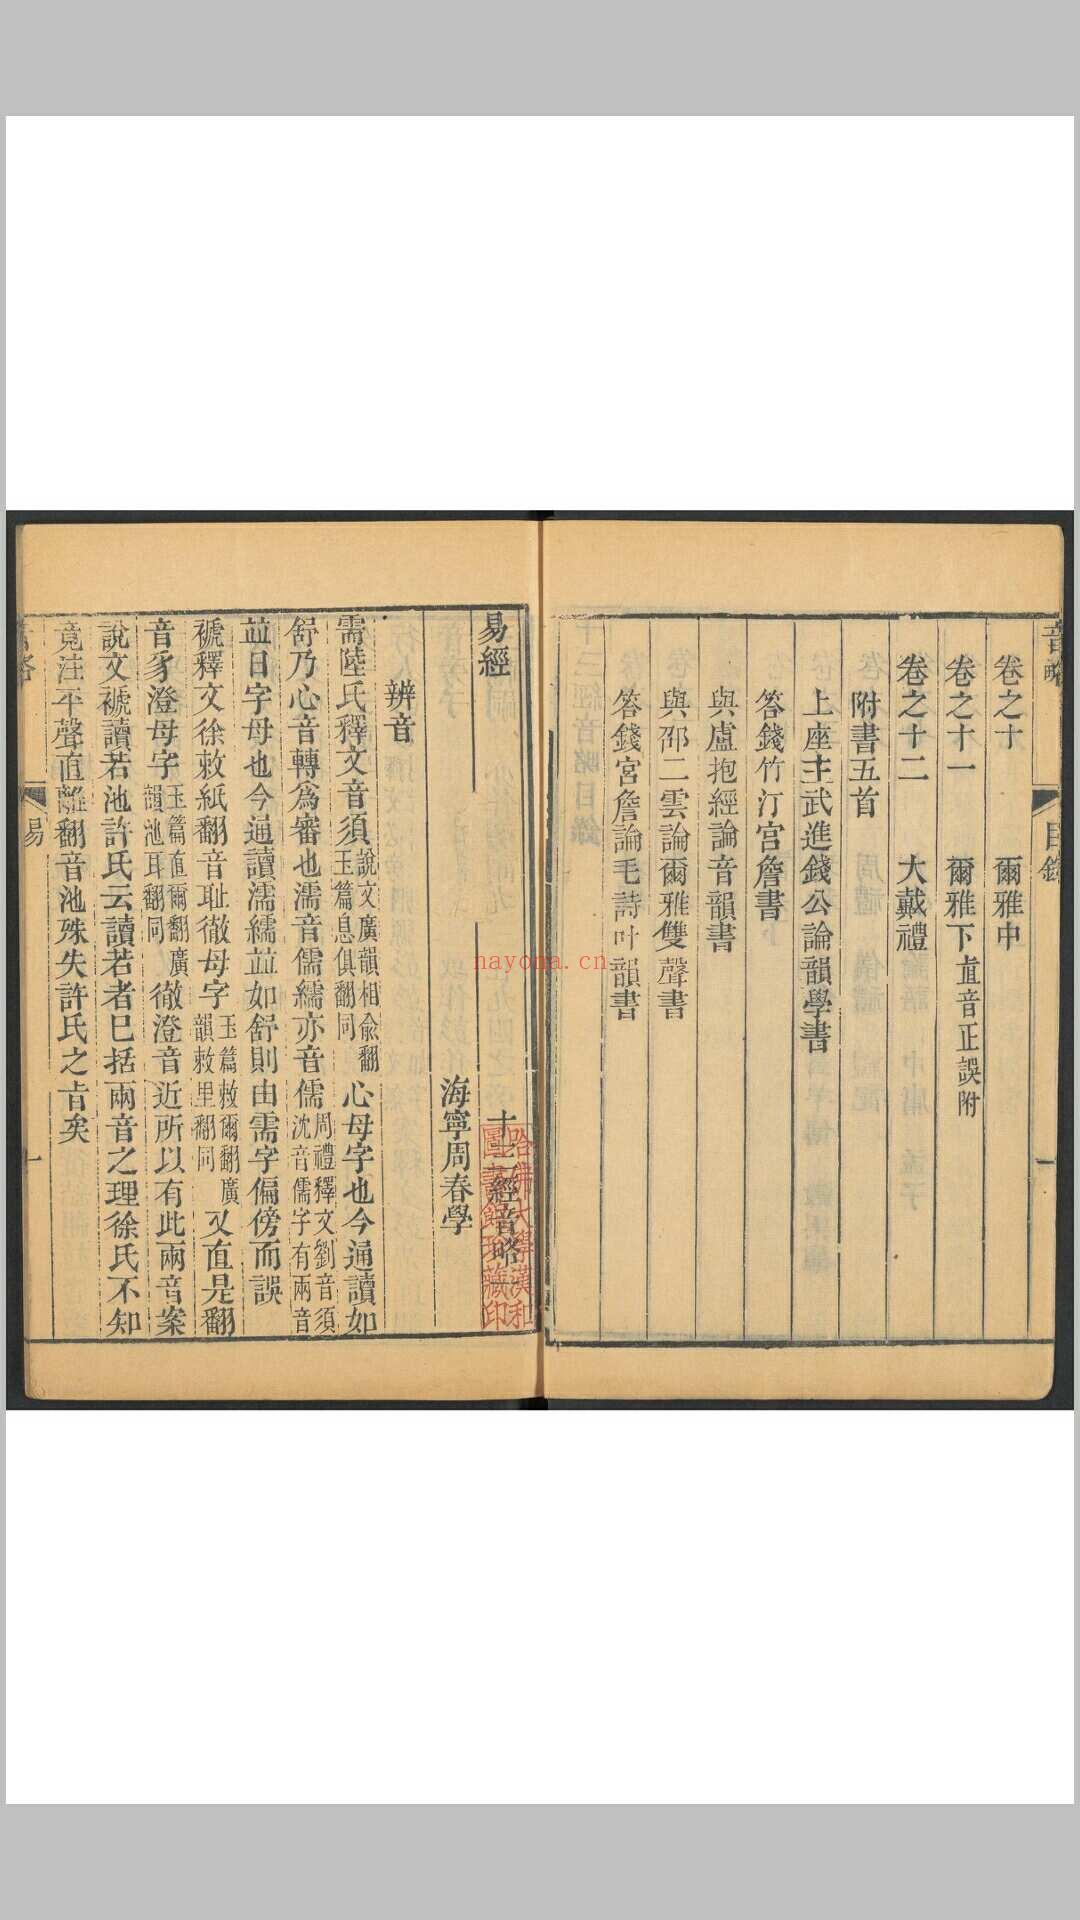 音略
目錄
一
卷之十 爾雅中
卷之十一 爾雅下直音正誤附
卷之十二 大戴禮
附書五首
上座主武進錢公論韻學書
答錢竹汀宮詹書
與盧抱經論音韻書
與邵二雲論爾雅雙聲書
答錢宮詹論毛詩叶韻書
易經 十三經音略
海寧周春學
辨音
需陸氏釋文音須說文廣韻相俞翻玉篇息俱翻同心母字也今通讀如
舒乃心音轉爲審也濡音儒繻亦音儒周禮釋文劉音須沈音儒字有兩音
竝日字母也今通讀濡繻竝如舒則由需字偏傍而誤
褫釋文徐敕紙翻音恥徹母字玉篇敕爾翻廣韻敕里翻同又直是翻
音豸澄母字玉篇直爾翻廣韻池耳翻同徹澄音近所以有此兩音案
說文褫讀若池許氏云讀若者巳括兩音之理徐氏不知
竟注平聲直離翻音池殊失許氏之旨矣
音略
易
一
哈佛大學漢和
圖書館珍藏印
nayona.cn